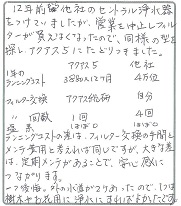 12年前 留 他社のセントラル浄水器
をつけていましたが、営業を休止しフィルター
が買えなくなったので、同様の型を
探し、アクアス5にたどりつきました。
アクアス5 他社
1年の
ランニングコスト 3880×12ヶ月 4万位
フィルター交換 アクアス総研 自分
〃 回数 1回 4回
塩素 ほぼ0 ほぼ0
ランニングコストの差は、フィルター交換の手間と
メンテ費用と考えれば同じですが、大きな差
は、定期メンテがあることで、安心感に
つながります。
樹木やお花用に浄水にすればよかったです。